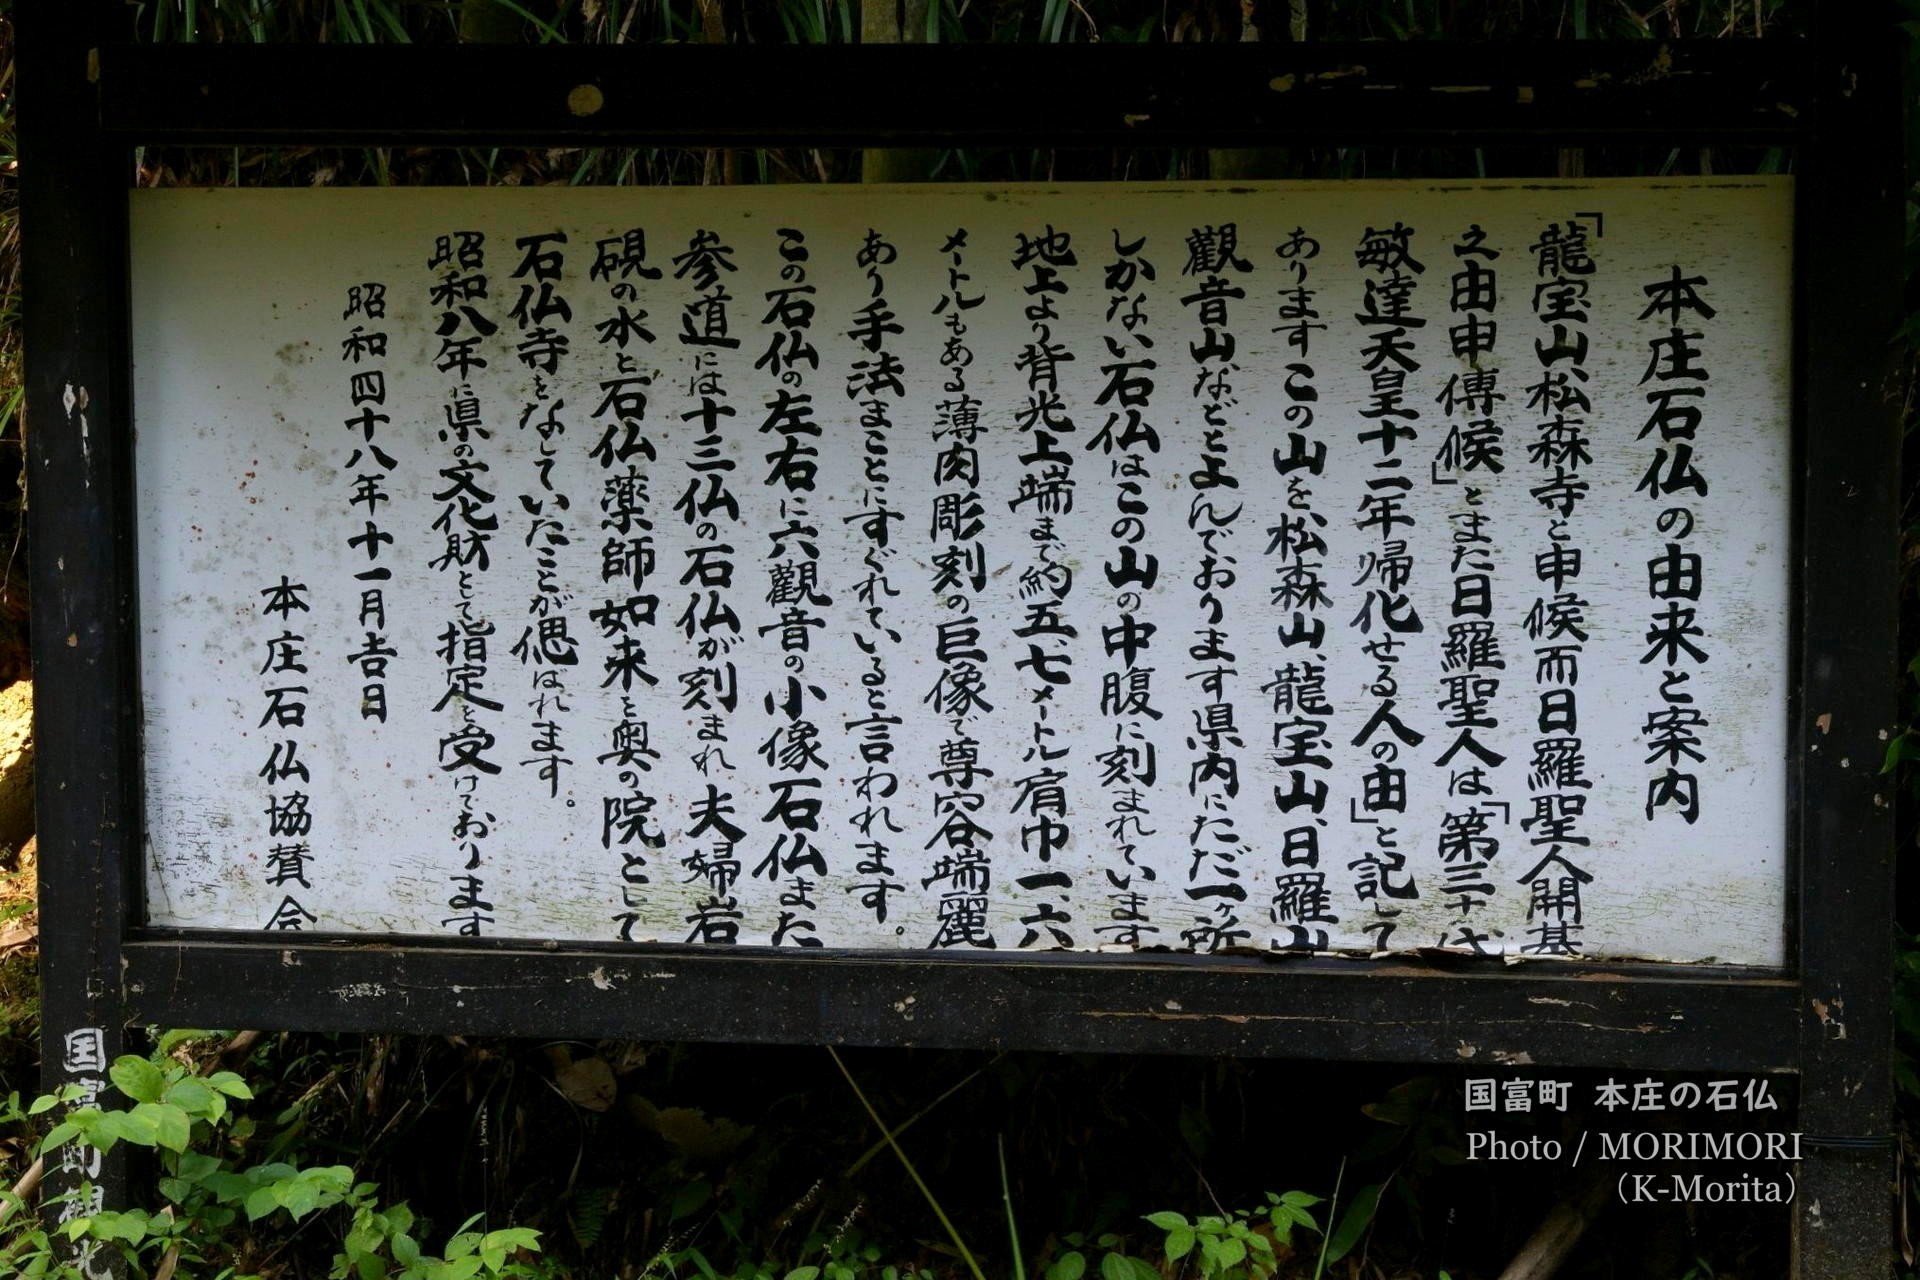 本庄石仏の由来と案内
「龍宝山、松森寺と申候而日羅聖人開基
之由申傳候」とまた日羅聖人は「第三十代
敏達天皇十二年帰化せる人の由」と記して
ありますこの山を松森山、龍宝山、日羅山
觀音山、などとよんでおります県内にただ一ヶ所
しかない石仏はこの山の中腹に刻まれています
地上より背光上端まで約五、七メートル肩巾一、六
メートルもある薄肉彫刻の巨像で尊容端麗
あり手法まことにすぐれていると言われます。
この石仏の左右に六觀音の小像石仏また
参道には十三仏の石仏が刻まれ夫婦岩
硯の水と石仏薬師如来と奥の院として
石仏寺をなしていたことが偲ばれます。
昭和八年に県の文化財として指定を受けております
昭和四十八年十一月吉日
本庄石仏協賛会
国富町観光
国富町 本庄の石仏
Photo / MORIMORI
（K-Morita）